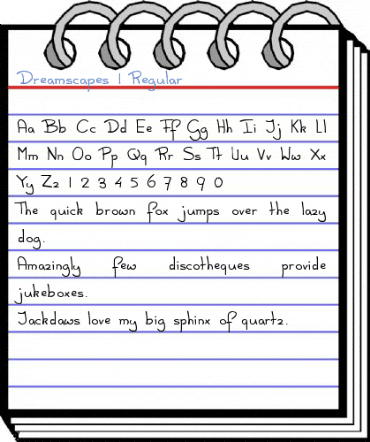 Dreamscapes | Regular
Aa Bb Cc Dd Ee Ff Gg Hh Ii Jj Kk Ll
Mm Nn Oo Pp Qq Rr Ss Tt Uu Vv Ww Xx
Yy Zz 1 2 3 4 5 6 7 8 9 0
The quick brown fox jumps over the lazy
dog.
Amazingly few discotheques provide
jukeboxes.
Jackdaws love my big sphinx of quartz.